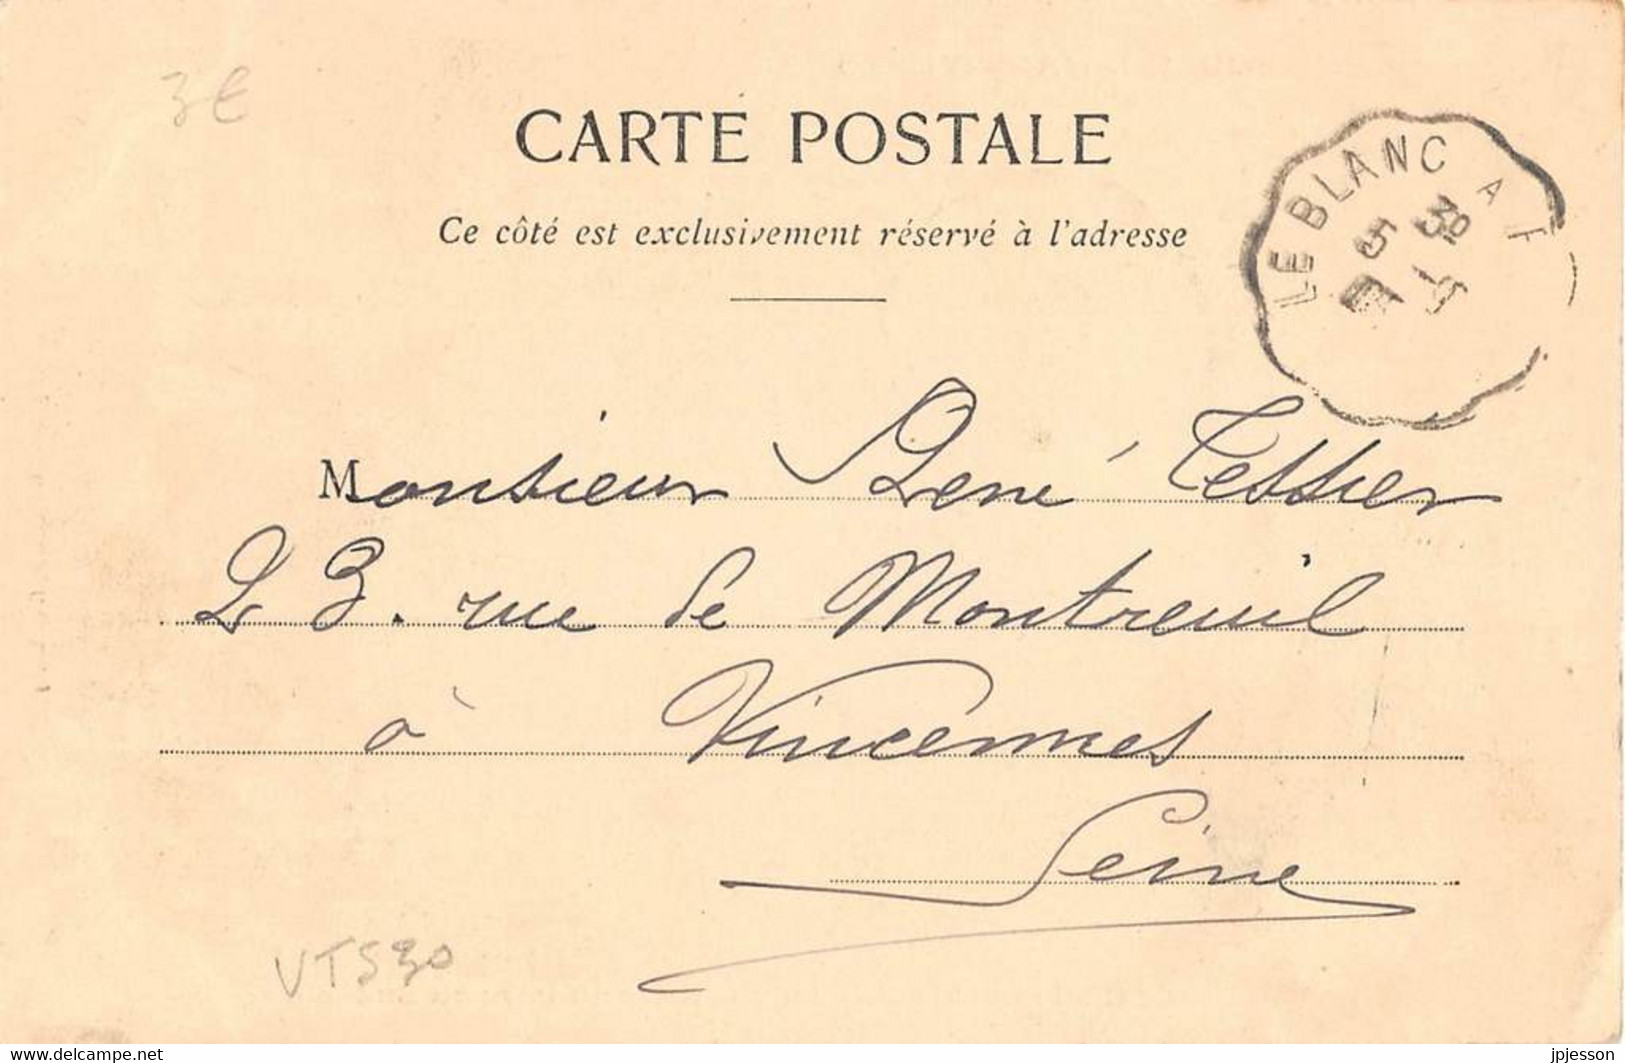 3€
CARTE POSTALE
Ce côté est exclusivement réservé à l'adresse
LE BLANC A
5
Monsieur René Tessier
23. rue de Montreuil
à Vincennes
Seine
VTS30
delcampe.net
jpjesson